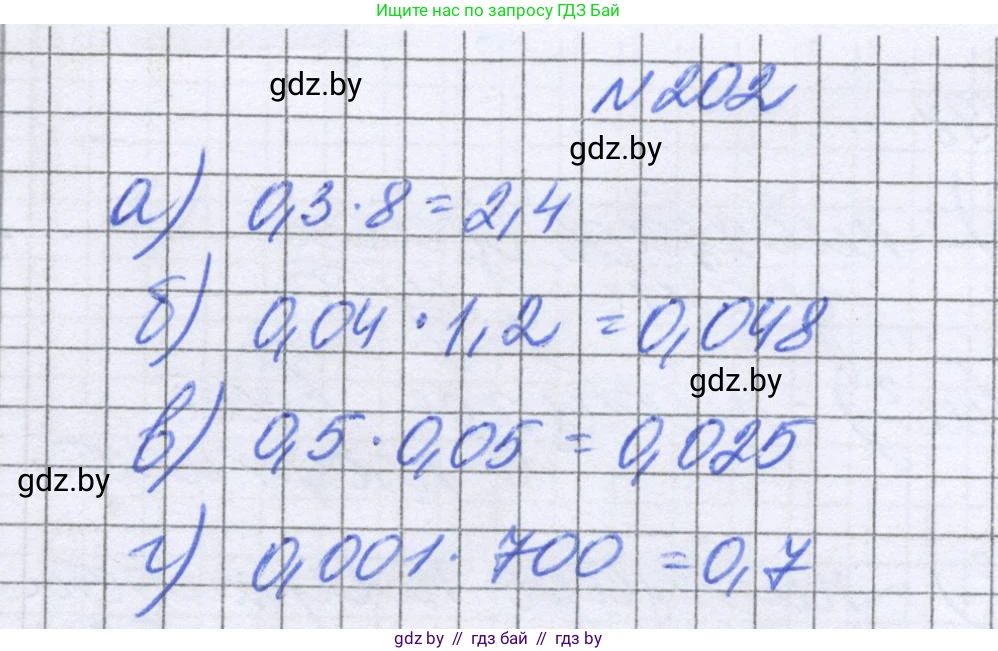 Ищите нас по запросу ГДЗ Бай
gdz.by
N 202
gdz.by
а) 0,3 · 8 = 2,4
б) 0,04 · 1,2 = 0,048
gdz.by
в) 0,5 · 0,05 = 0,025
gdz.by
г) 0,001 · 700 = 0,7
gdz by // гдз бай // гдз by